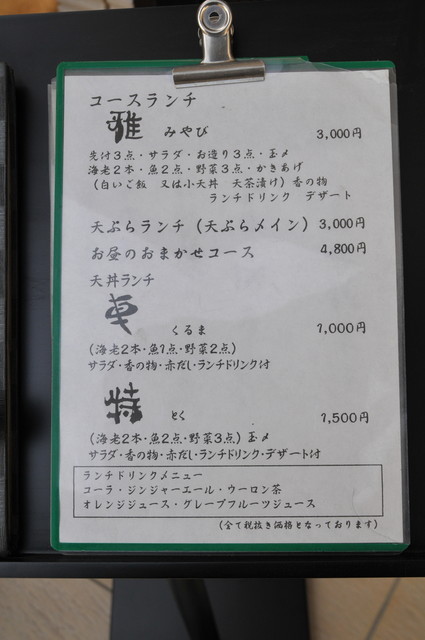 コースランチ
雅 みやび 3,000円
先付3点・サラダ・お造り3点・玉〆
海老2本・魚2点・野菜3点・かきあげ
（白いご飯 又は小天丼 天茶漬け）香の物
ランチドリンク デザート
天ぷらランチ（天ぷらメイン）3,000円
お昼のおまかせコース 4,800円
天丼ランチ
車 くるま 1,000円
（海老2本・魚1点・野菜2点）
サラダ・香の物・赤だし・ランチドリンク付
特 とく 1,500円
（海老2本・魚2点・野菜3点）玉〆
サラダ・香の物・赤だし・ランチドリンク・デザート付
ランチドリンクメニュー
コーラ・ジンジャーエール・ウーロン茶
オレンジジュース・グレープフルーツジュース
（全て税抜き価格となっております）